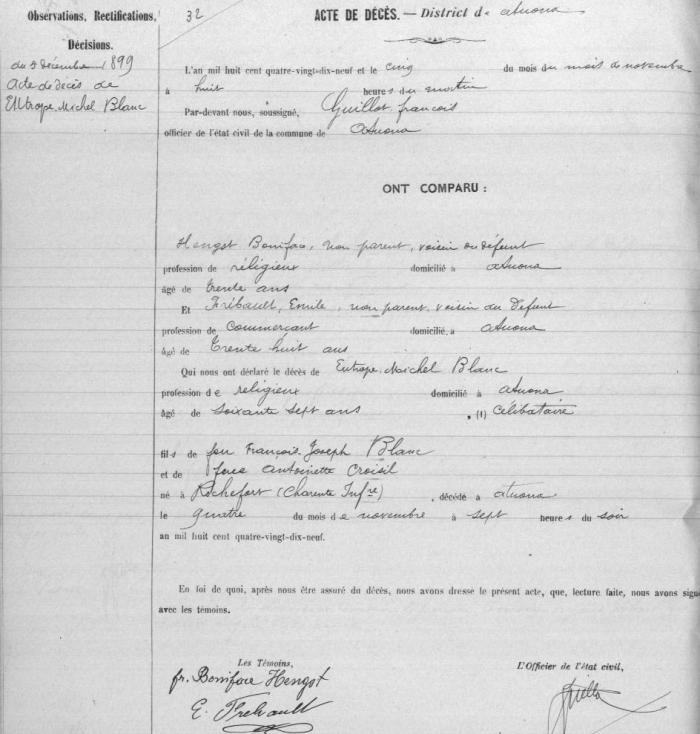 Observations, Rectifications,
Décisions.
du 5 décembre 1899
acte de décès de
Eutrope Michel Blanc
32
ACTE DE DÉCÈS. — District de atuona
L'an mil huit cent quatre-vingt-dix-neuf et le cinq du mois du mois de novembre
à huit heures du matin
Par-devant nous, soussigné, Guillot françois
officier de l'état civil de la commune de atuona
ONT COMPARU :
Hengst Boniface, non parent, voisin du défunt
profession de réligieux domicilié à atuona
âgé de trente ans
Et Frébault, Emile, non parent, voisin du défunt
profession de commerçant domicilié à atuona
âgé de trente huit ans
Qui nous ont déclaré le décès de Eutrope Michel Blanc
profession de religieux domicilié à atuona
âgé de soixante sept ans , (1) célibataire
fils de feu François Joseph Blanc
et de feue Antoinette Croisil
né à Rochefort (Charente Infre) , décédé à atuona
le quatre du mois de novembre à sept heures du soir
an mil huit cent quatre-vingt-dix-neuf.
En foi de quoi, après nous être assuré du décès, nous avons dresse le présent acte, que, lecture faite, nous avons signé
avec les témoins.
Les Témoins,
fr. Boniface Hengst
E. Frebault
L'Officier de l'état civil,